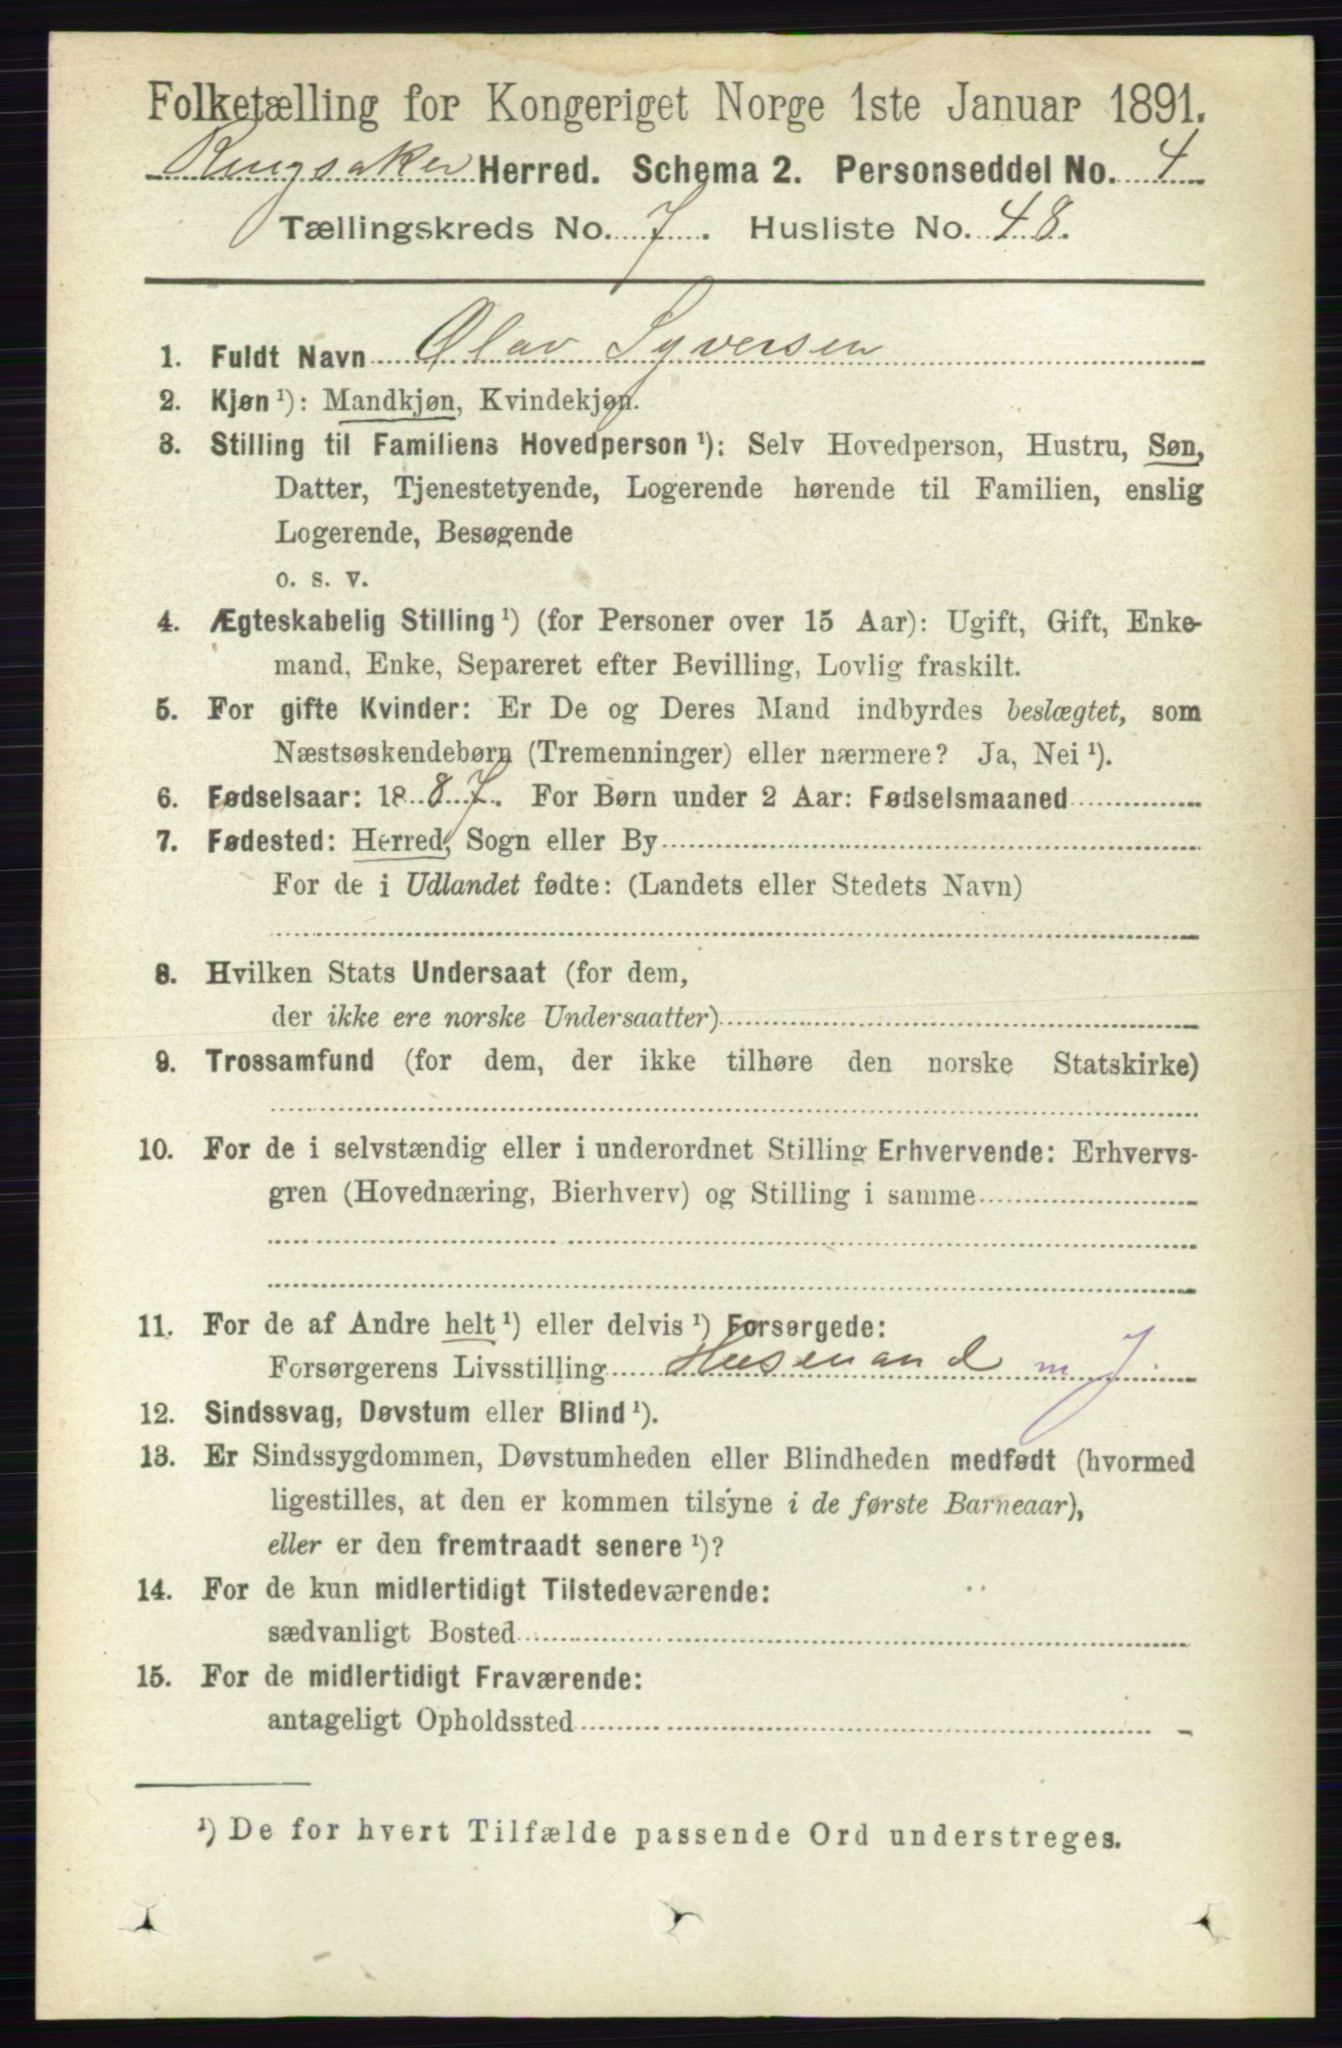 Folketælling for Kongeriget Norge 1ste Januar 1891.
Ringsaker Herred. Schema 2. Personseddel No. 4
Tællingskreds No. 7. Husliste No. 48.
1. Fuldt Navn Olav Syversen
2. Kjøn ¹): Mandkjøn, Kvindekjøn.
3. Stilling til Familiens Hovedperson ¹): Selv Hovedperson, Hustru, Søn,
Datter, Tjenestetyende, Logerende hørende til Familien, enslig
Logerende, Besøgende
o. s. v.
4. Ægteskabelig Stilling ¹) (for Personer over 15 Aar): Ugift, Gift, Enke-
mand, Enke, Separeret efter Bevilling, Lovlig fraskilt.
5. For gifte Kvinder: Er De og Deres Mand indbyrdes beslægtet, som
Næstsøskendebørn (Tremenninger) eller nærmere? Ja, Nei ¹).
6. Fødselsaar: 1887. For Børn under 2 Aar: Fødselsmaaned
7. Fødested: Herred, Sogn eller By
For de i Udlandet fødte: (Landets eller Stedets Navn)
8. Hvilken Stats Undersaat (for dem,
der ikke ere norske Undersaatter)
9. Trossamfund (for dem, der ikke tilhøre den norske Statskirke)
10. For de i selvstændig eller i underordnet Stilling Erhvervende: Erhvervs-
gren (Hovednæring, Bierhverv) og Stilling i samme
11. For de af Andre helt ¹) eller delvis ¹) Forsørgede:
Forsørgerens Livsstilling Husmand m J.
12. Sindssvag, Døvstum eller Blind ¹).
13. Er Sindssygdommen, Døvstumheden eller Blindheden medfødt (hvormed
ligestilles, at den er kommen tilsyne i de første Barneaar),
eller er den fremtraadt senere ¹)?
14. For de kun midlertidigt Tilstedeværende:
sædvanligt Bosted
15. For de midlertidigt Fraværende:
antageligt Opholdssted
¹) De for hvert Tilfælde passende Ord understreges.